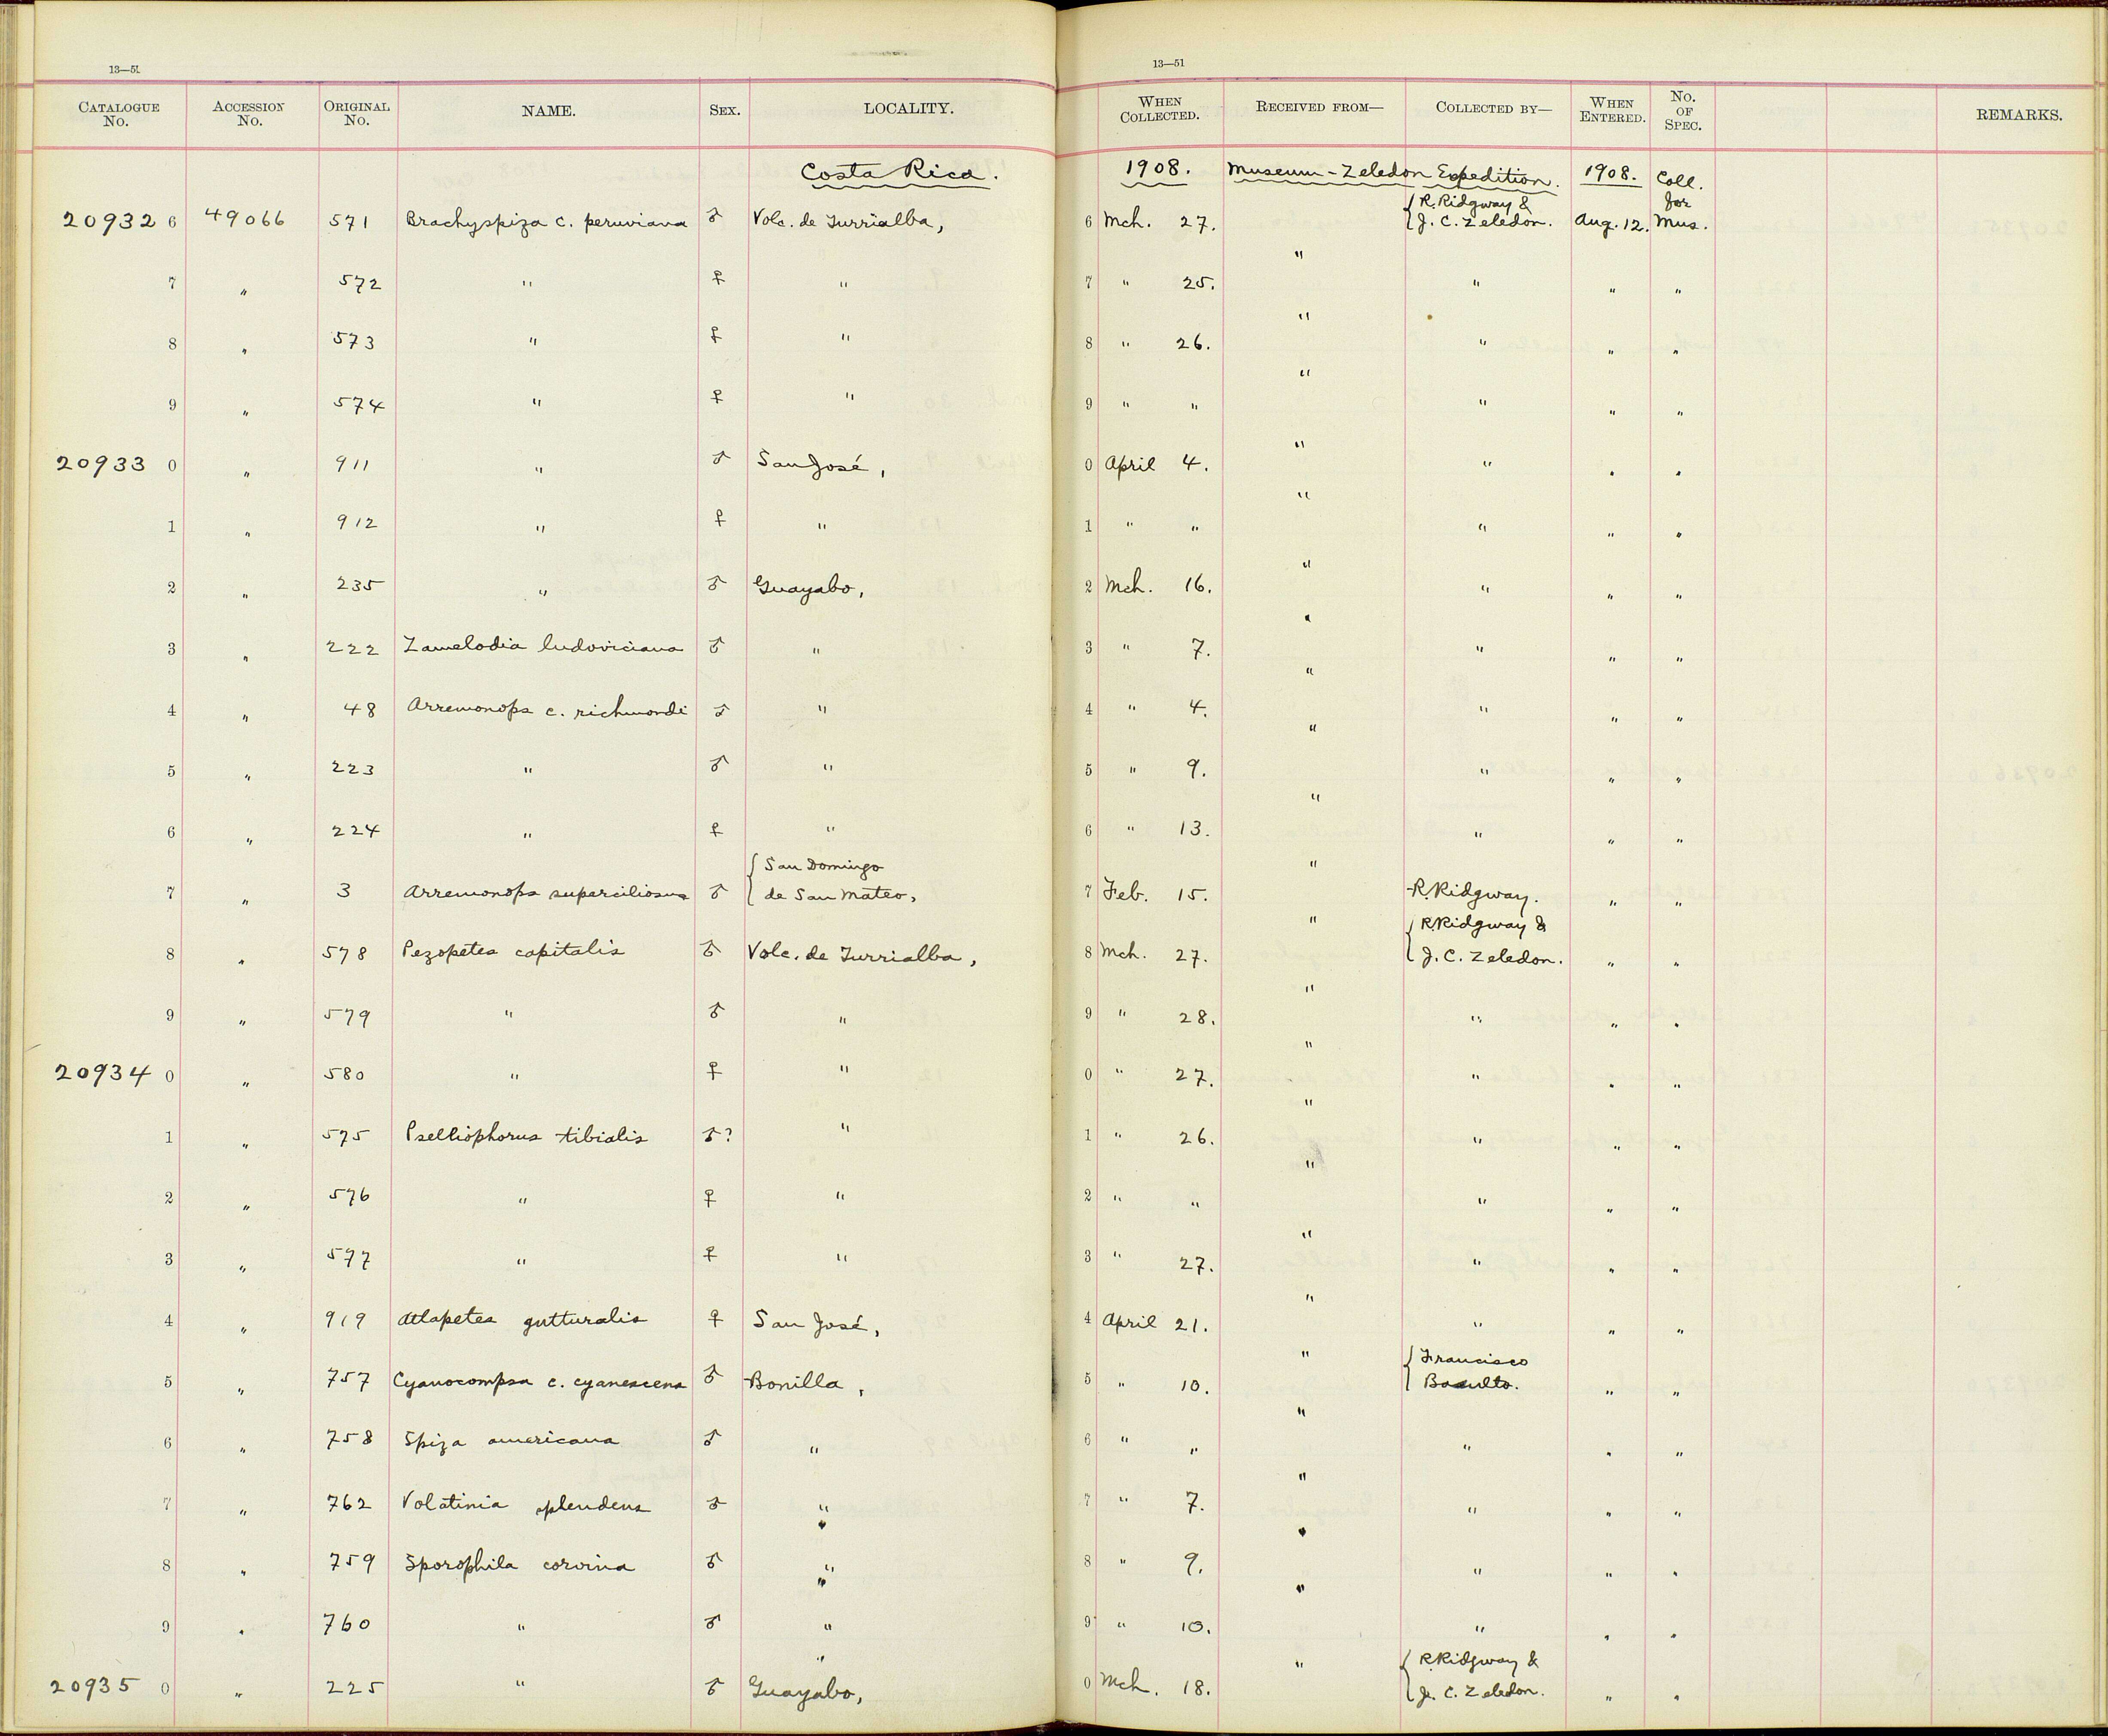 13—51 13—51
CATALOGUE No. ACCESSION No. ORIGINAL No. NAME. SEX. LOCALITY. WHEN COLLECTED. RECEIVED FROM— COLLECTED BY— WHEN ENTERED. No. OF SPEC. REMARKS.
Costa Rica. 1908. Museum-Zeledon Expedition. 1908. Coll. for
20932 6 49066 571 Brachyspiza c. peruviana ♂ Volc. de Turrialba, 6 Mch. 27. " { R. Ridgway & J. C. Zeledon. Aug. 12. Mus.
7 " 572 " ♀ " 7 " 25. " " " "
8 " 573 " ♀ " 8 " 26. " " " "
9 " 574 " ♀ " 9 " " " " " "
20933 0 " 911 " ♂ San José, 0 April 4. " " " "
1 " 912 " ♀ " 1 " " " " " "
2 " 235 " ♂ Guayabo, 2 Mch. 16. " " " "
3 " 222 Zamelodia ludoviciana ♂ " 3 " 7. " " " "
4 " 48 Arremonops c. richmondi ♂ " 4 " 4. " " " "
5 " 223 " ♂ " 5 " 9. " " " "
6 " 224 " ♀ " 6 " 13. " " " "
7 " 3 Arremonops superciliosus ♂ { San Domingo de San Mateo, 7 Feb. 15. " R. Ridgway. " "
8 " 578 Pezopetes capitalis ♂ Volc. de Turrialba, 8 Mch. 27. " { R. Ridgway & J. C. Zeledon. " "
9 " 579 " ♂ " 9 " 28. " " " "
20934 0 " 580 " ♀ " 0 " 27. " " " "
1 " 575 Pselliophorus tibialis ♂? " 1 " 26. " " " "
2 " 576 " ♀ " 2 " " " " " "
3 " 577 " ♀ " 3 " 27. " " " "
4 " 919 Atlapetes gutturalis ♀ San José, 4 April 21. " " " "
5 " 757 Cyanocompsa c. cyanescens ♂ Bonilla, 5 " 10. " { Francisco Basulto. " "
6 " 758 Spiza americana ♂ " 6 " " " " " "
7 " 762 Volatinia splendens ♂ " 7 " 7. " " " "
8 " 759 Sporophila corvina ♂ " 8 " 9. " " " "
9 " 760 " ♂ " 9 " 10. " " " "
20935 0 " 225 " ♂ Guayabo, 0 Mch. 18. " { R. Ridgway & J. C. Zeledon. " "